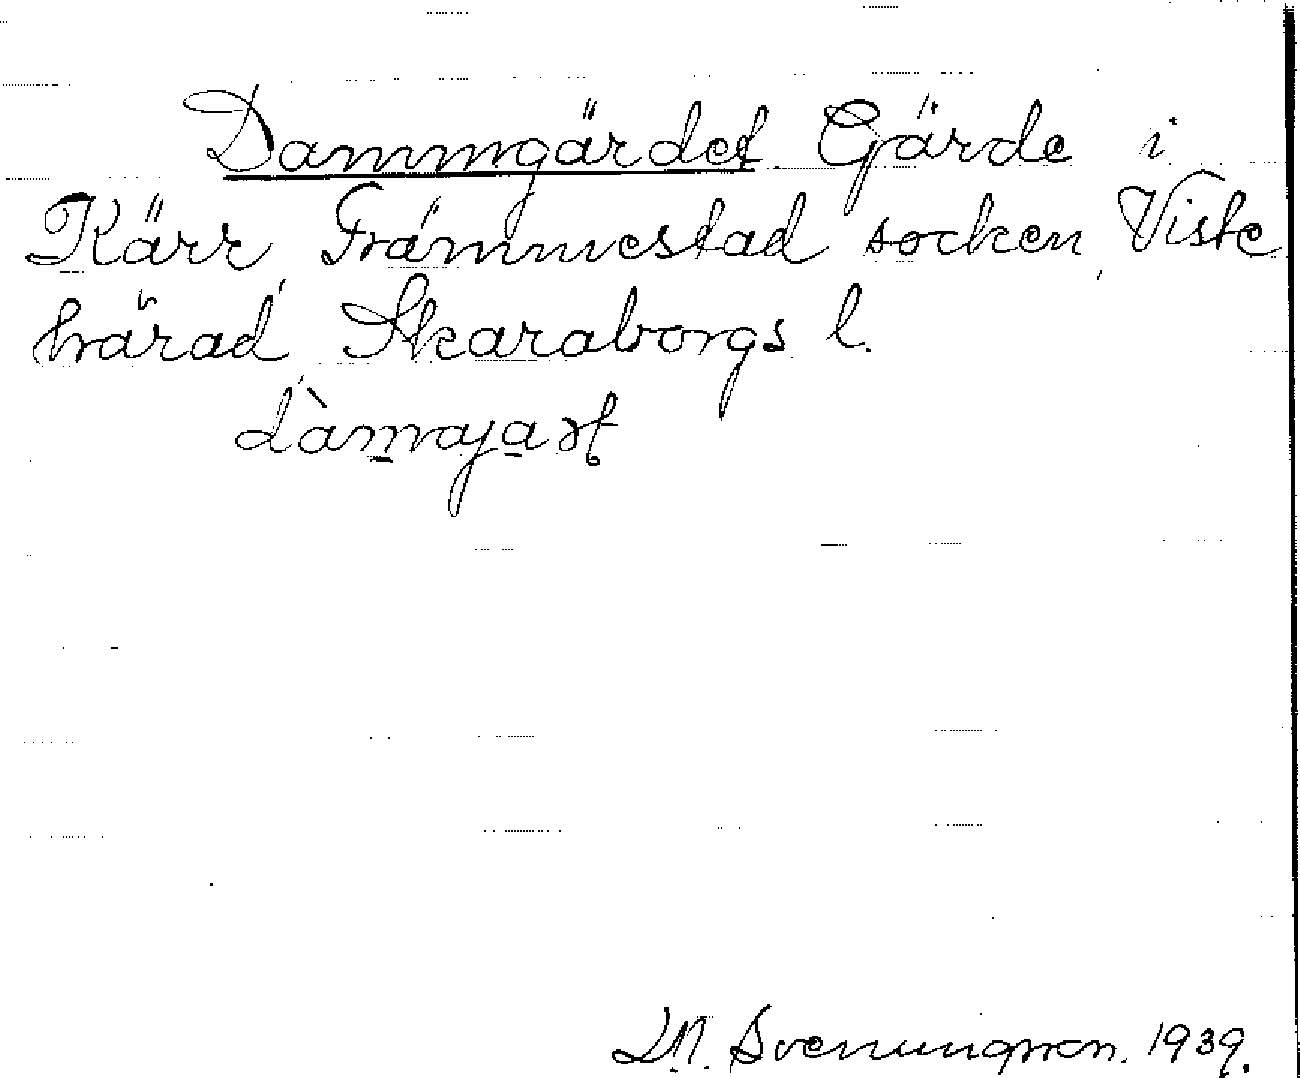 Dammgärdet. Gärde i
Kärr, Främmestad socken, Viste
härad, Skaraborgs l.
Svenningsson. 1939.